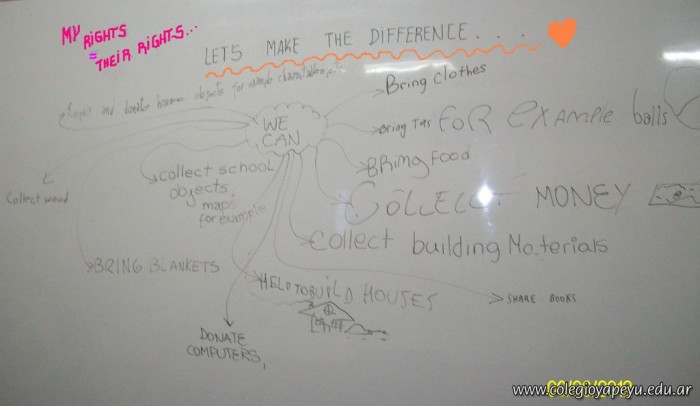 MY RIGHTS
=
THEIR RIGHTS...
LETS MAKE THE DIFFERENCE....
and donate objects for example
Bring clothes
WE
CAN
Bring FOR EXAMPLE balls
BRING FOOD
collect school
objects
maps
for example
Collect wood
COLLECT MONEY
Collect building Materials
BRING BLANKETS
HELD TO BUILD HOUSES
SHARE BOOKS
DONATE
COMPUTERS,
www.colegioyapeyu.edu.ar